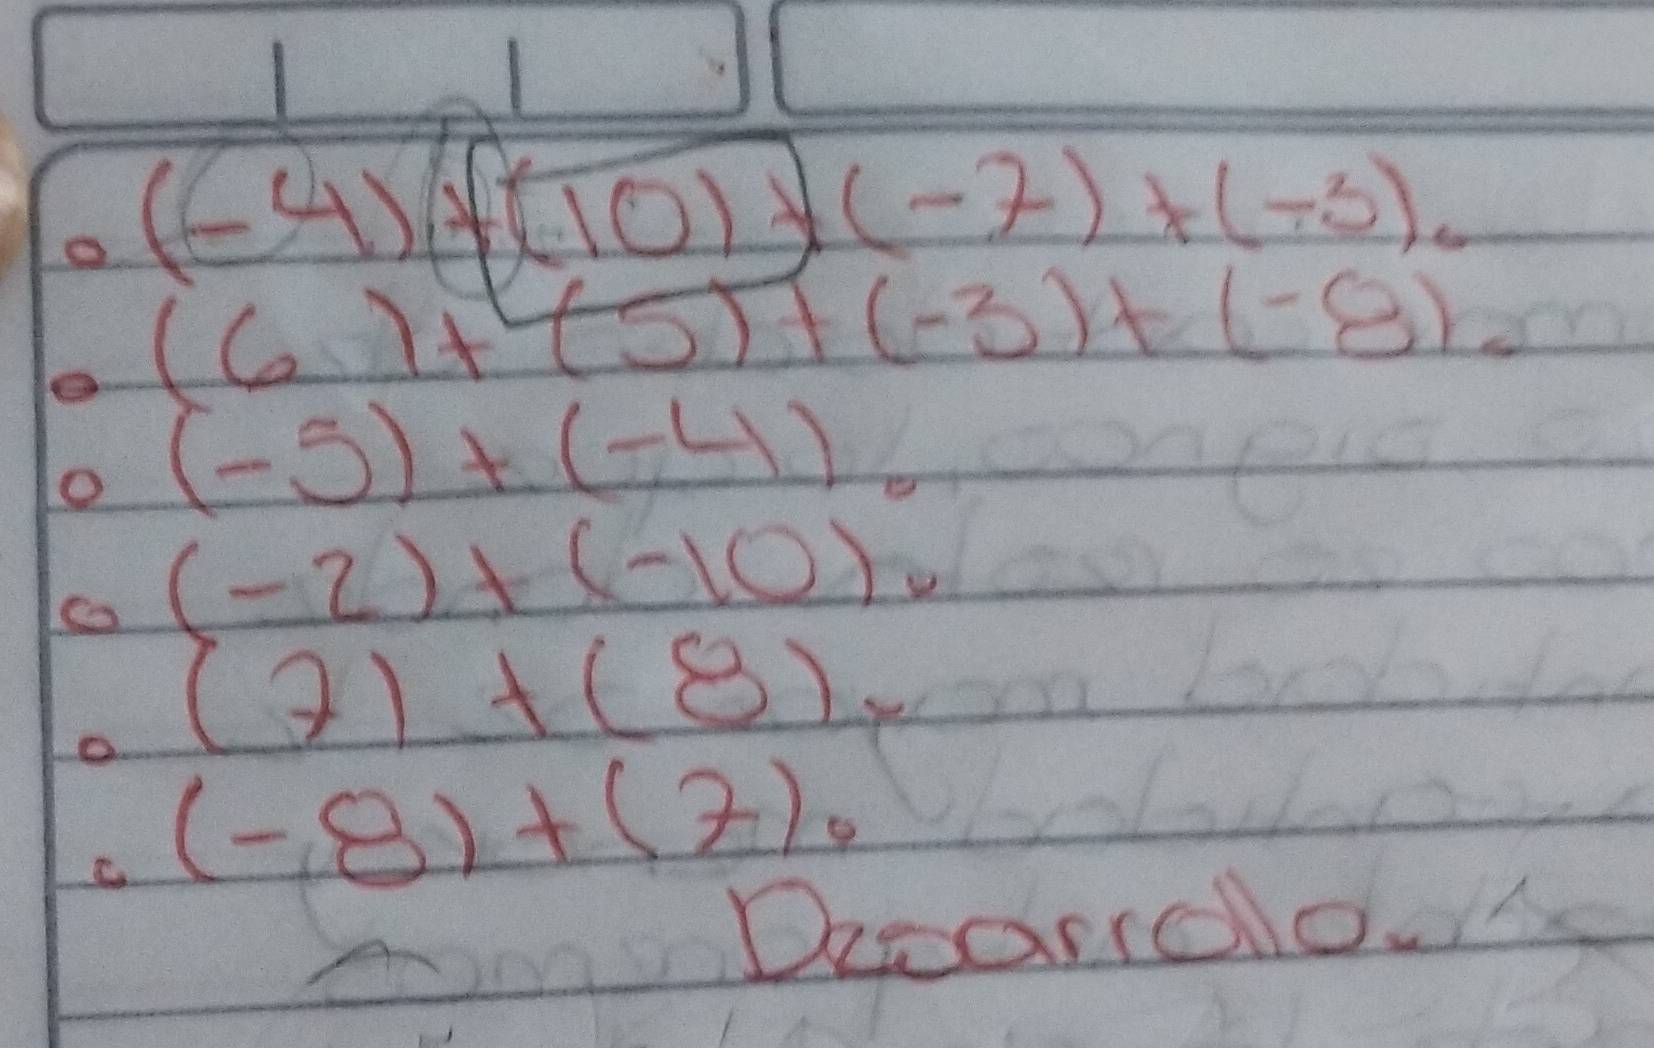 (-4)+(10)+(-7)+(-3).
(6)+(5)+(-3)+(-8).
(-5)+(-4).
(-2)+(-10).
(7)+(8).
(-8)+(7).
Desarrollo.